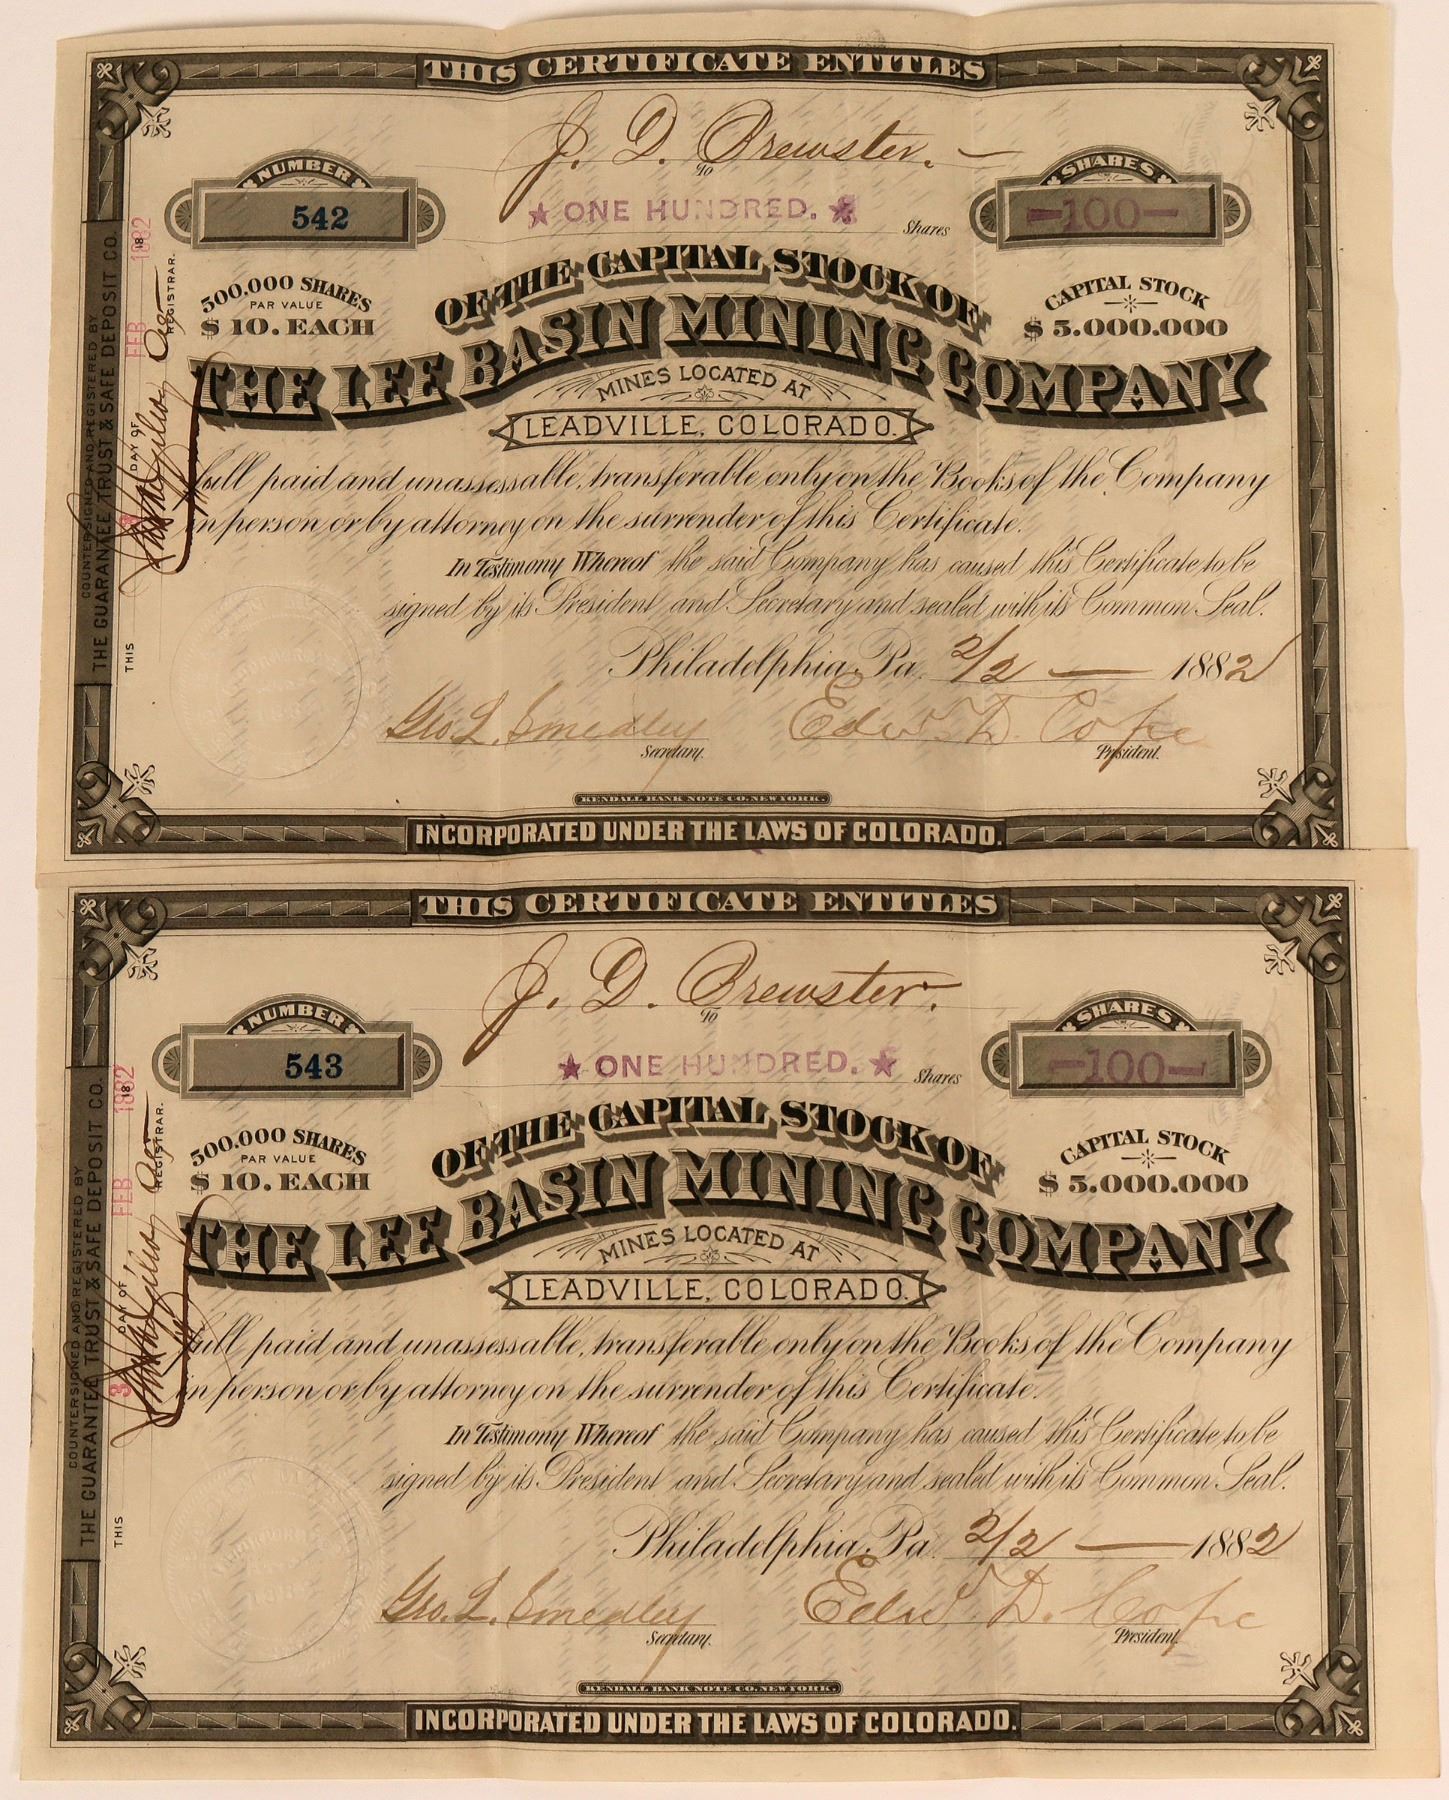 THIS CERTIFICATE ENTITLES
J. D. Brewster.
To
NUMBER
542
★ ONE HUNDRED. ★
Shares
SHARES
—100—
500,000 SHARES
PAR VALUE
$ 10. EACH
OF THE CAPITAL STOCK OF
CAPITAL STOCK
$ 5.000.000
THE LEE BASIN MINING COMPANY
MINES LOCATED AT
LEADVILLE, COLORADO.
full paid and unassessable, transferable only on the Books of the Company
in person or by attorney on the surrender of this Certificate.
In Testimony Whereof the said Company has caused this Certificate to be
signed by its President and Secretary and sealed with its Common Seal.
Philadelphia, Pa. 2/2 — 1882
Geo. L. Smedley
Secretary.
Edw. D. Cope
President.
KENDALL BANK NOTE CO. NEW YORK.
INCORPORATED UNDER THE LAWS OF COLORADO.
COUNTERSIGNED AND REGISTERED BY
THE GUARANTEE TRUST & SAFE DEPOSIT CO.
THIS 3 DAY OF FEB 1882 18
REGISTRAR.
THIS CERTIFICATE ENTITLES
J. D. Brewster.
To
NUMBER
543
★ ONE HUNDRED. ★
Shares
SHARES
—100—
500,000 SHARES
PAR VALUE
$ 10. EACH
OF THE CAPITAL STOCK OF
CAPITAL STOCK
$ 5.000.000
THE LEE BASIN MINING COMPANY
MINES LOCATED AT
LEADVILLE, COLORADO.
full paid and unassessable, transferable only on the Books of the Company
in person or by attorney on the surrender of this Certificate.
In Testimony Whereof the said Company has caused this Certificate to be
signed by its President and Secretary and sealed with its Common Seal.
Philadelphia, Pa. 2/2 — 1882
Geo. L. Smedley
Secretary.
Edw. D. Cope
President.
KENDALL BANK NOTE CO. NEW YORK.
INCORPORATED UNDER THE LAWS OF COLORADO.
COUNTERSIGNED AND REGISTERED BY
THE GUARANTEE TRUST & SAFE DEPOSIT CO.
THIS 3 DAY OF FEB 1882 18
REGISTRAR.